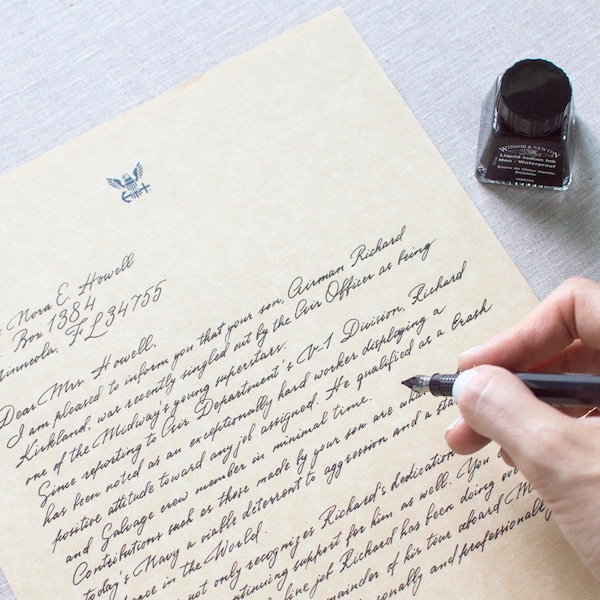 Nora E. Howell
Box 1384
Minneola, FL 34755
Dear Mrs. Howell,
I am pleased to inform you that your son, Airman Richard
Kirkland, was recently singled out by the Air Officer as being
one of the Midway's young superstars.
Since reporting to Air Department's V-1 Division, Richard
has been noted as an exceptionally hard worker displaying a
positive attitude toward any job assigned. He qualified as a Crash
and Salvage crew member in minimal time.
Contributions such as those made by your son are what
today's Navy a viable deterrent to aggression and a sta
in the World.
not only recognizes Richard's dedication
continuing support for him as well. You
fine job Richard has been doing
remainder of his tour aboard
and professionally
WINSOR & NEWTON
Liquid Indian Ink
Non-Waterproof